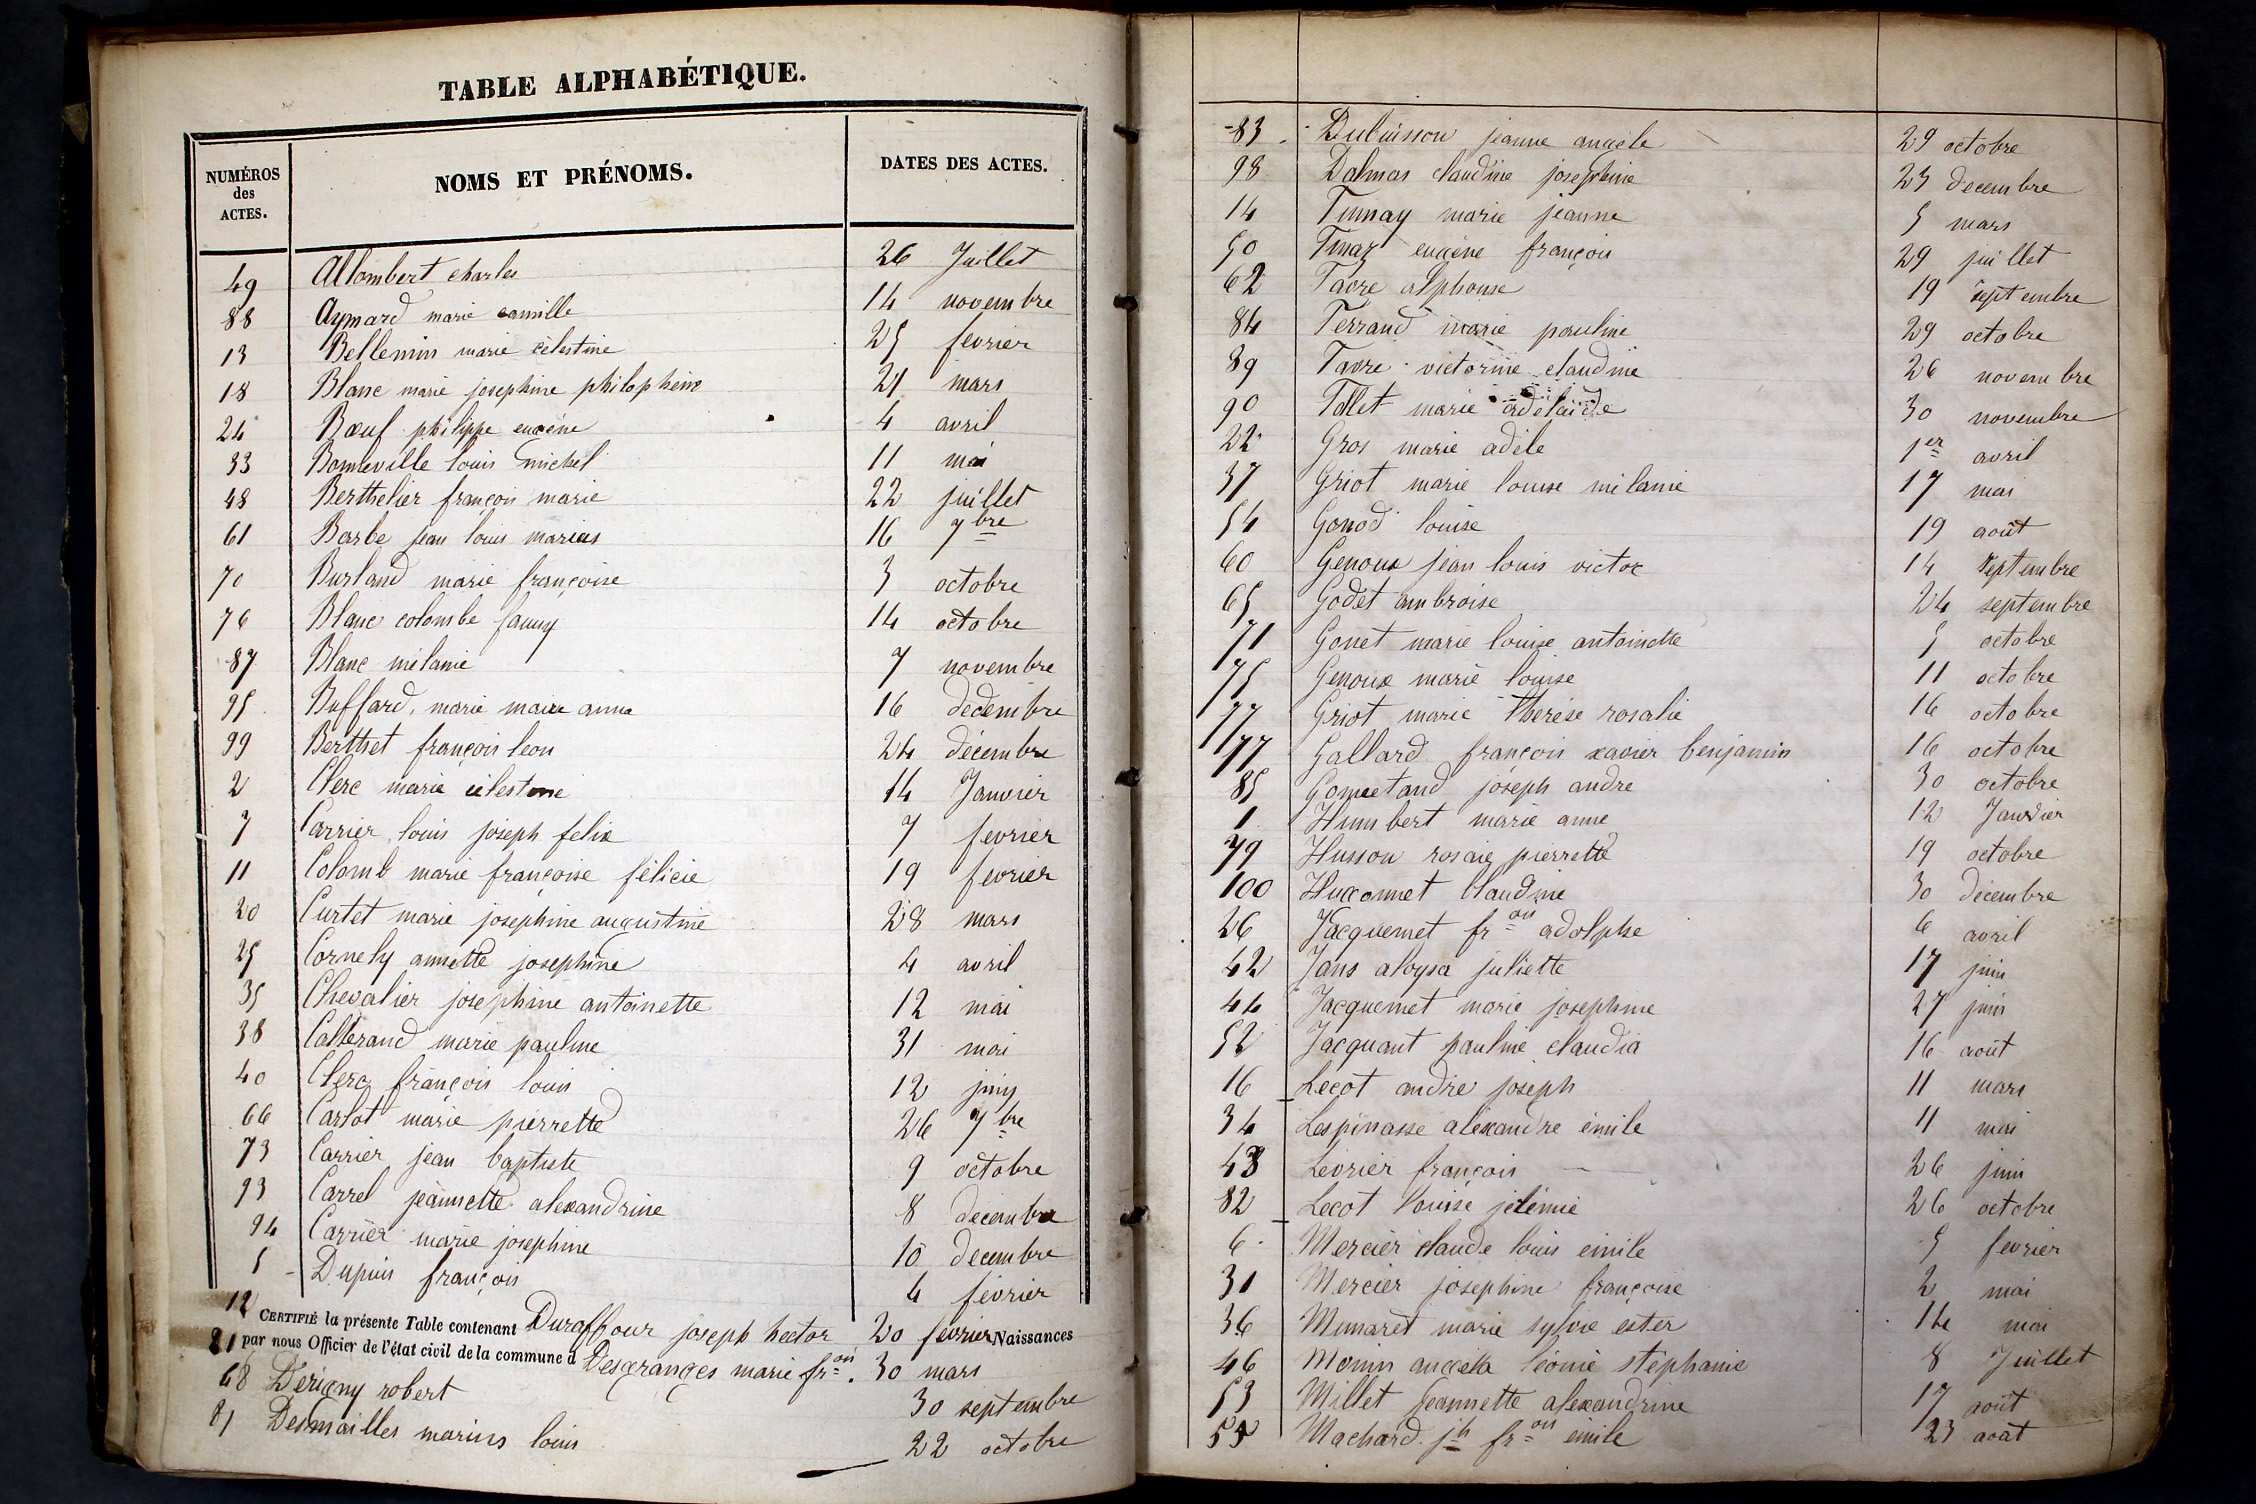 TABLE ALPHABÉTIQUE.
NUMÉROS des ACTES. NOMS ET PRÉNOMS. DATES DES ACTES.
49 Allombert charles 26 Juillet
88 Aymard marie camille 14 novembre
13 Bellemin marie célestine 25 fevrier
18 Blanc marie josephine philophène 21 mars
24 Bœuf philippe eugène 4 avril
33 Bonneville louis michel 11 mai
48 Berthelier françois marie 22 juillet
61 Barbe jean louis marius 16 7bre
70 Burland marie françoise 3 octobre
76 Blanc colombe fanny 14 octobre
87 Blanc mélanie 7 novembre
95 Buffard, marie anna 16 decembre
99 Berthet françois leon 24 décembre
2 Clerc marie célestine 14 Janvier
7 Carrier louis joseph felix 7 fevrier
11 Colomb marie françoise félicie 19 fevrier
20 Curtet marie josephine augustine 28 mars
25 Cornely annette josephine 4 avril
35 Chevalier josephine antoinette 12 mai
38 Catterand marie pauline 31 mai
40 Clerc françois louis 12 juin
66 Carlot marie pierrette 26 7bre
73 Carrier jean baptiste 9 octobre
93 Carrel jeannette alexandrine 8 decembre
94 Carrier marie josephine 10 decembre
5 Dupuis françois 4 février
12 Duraffour joseph hector 20 fevrier
CERTIFIÉ la présente Table contenant Naissances
par nous Officier de l'état civil de la commune d
21 Desgranges marie fron. 30 mars
68 Dérigny robert 30 septembre
81 Desmailles marius louis 22 octobre
83 Dubuisson jeanne angèle 29 octobre
98 Dalmas claudine josephine 23 decembre
14 marie jeanne 5 mars
50 eugène françois 29 juillet
62 Favre alphonse 19 septembre
84 Ferrand marie pauline 29 octobre
89 Favre victorine claudine 26 novembre
90 Follet marie adelaide 30 novembre
22 Gros marie adèle 1er avril
37 Griot marie louise mélanie 17 mai
54 Gonod louise 19 août
60 Genoux jean louis victor 14 septembre
65 Godet ambroise 24 septembre
71 Gonet marie louise antoinette 5 octobre
75 Genoux marie louise 11 octobre
77 Griot marie therèse rosalie 16 octobre
77 Gallard françois xavier benjamin 16 octobre
85 joseph andre 30 octobre
1 Humbert marie anne 12 Janvier
79 Husson pierrette 19 octobre
100 Hugonnet Claudine 30 décembre
26 Jacquemet fron adolphe 6 avril
42 Jans aloysa juliette 17 juin
44 Jacquemet marie josephine 27 juin
52 Jacquant pauline claudia 16 août
16 Lecot andre joseph 11 mars
34 Lespinasse alexandre émile 11 mai
43 Levrier françois 26 juin
82 Lecot louise 26 octobre
6 Mercier claude louis emile 5 fevrier
31 Mercier josephine françoise 2 mai
36 Munaret marie sylvie ester 14 mai
46 Monin angela léonie stéphanie 8 Juillet
53 Millet Jeannette alexandrine 17 août
55 Machard jh fron émile 23 août